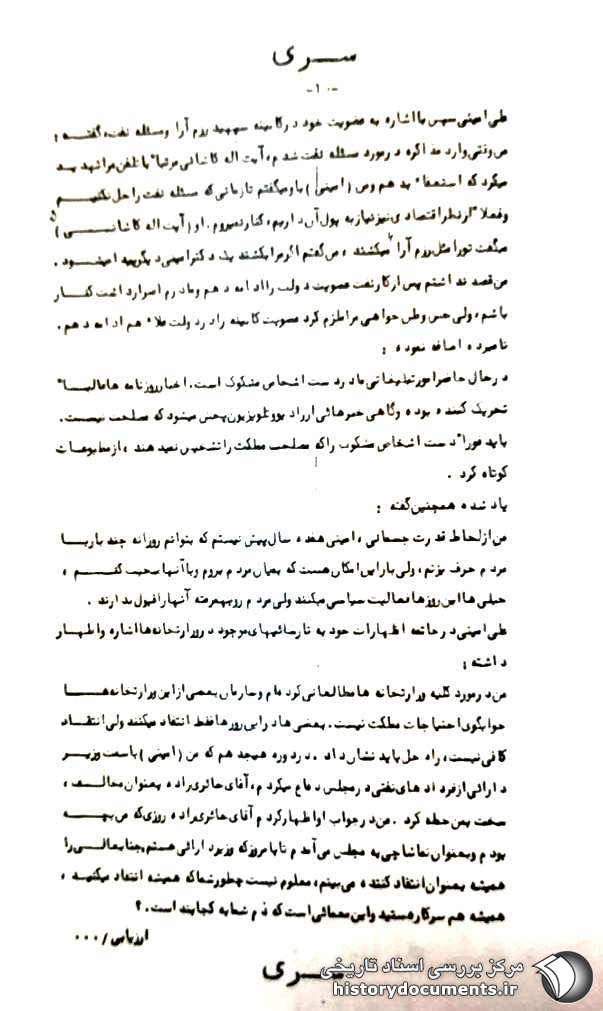 سری
-۱۰-
علی امینی سپس با اشاره به عضویت خود در کابینه سپهبد رزم آرا و مسئله نفت، گفته :
من وقتی وارد مذاکره در مورد مسئله نفت شدم، آیت اله کاشانی مرتبا" با تلفن مرا تهدید
میکرد که استعفا" بدهم و من (امینی) باو میگفتم تا زمانی که مسئله نفت را حل نکنیم
و فعلا" از نظر اقتصادی نیز نیاز به پول آن داریم، کنار نمیروم. او (آیت اله کاشانی)
میگفت تو را مثل رزم آرا میکشند، من گفتم اگر مرا بکشند یک دکتر امینی دیگر پیدا میشود.
من قصد نداشتم پس از کار نفت عضویت دولت را ادامه دهم و مادرم اصرار داشت کنار
باشم، ولی حس وطن خواهی مرا ملزم کرد عضویت کابینه را در دولت علاء هم ادامه دهم.
نامبرده اضافه نموده :
در حال حاضر امور تبلیغاتی ما در دست اشخاص مشکوک است. اخبار روزنامه ها غالبا"
تحریک کننده بوده و گاهی خبرهائی از رادیو و تلویزیون پخش میشود که مصلحت نیست.
باید فورا" دست اشخاص مشکوک را که مصلحت مملکت را تشخیص نمیدهند، از مطبوعات
کوتاه کرد .
یاد شده همچنین گفته :
من از لحاظ قدرت جسمانی، امینی هفده سال پیش نیستم که بتوانم روزانه چند بار با
مردم حرف بزنم، ولی باز این امکان هست که بمیان مردم بروم و با آنها صحبت کنم،
خیلی ها این روزها فعالیت سیاسی میکنند ولی مردم رویهمرفته آنها را قبول ندارند .
علی امینی در خاتمه اظهارات خود به نارسائیهای موجود در وزارتخانه ها اشاره و اظهار
داشته :
من در مورد کلیه وزارتخانه ها مطالعاتی کرده ام و سازمان بعضی از این وزارتخانه ها
جوابگوی احتیاجات مملکت نیست. بعضی ها در این روزها فقط انتقاد میکنند ولی انتقاد
کافی نیست، راه حل باید نشان داد. در دوره هیجدهم که من (امینی) با سمت وزیر
دارائی از قرارداد های نفتی در مجلس دفاع میکردم، آقای حائری زاده بعنوان مخالف،
سخت بمن حمله کرد. من در جواب او اظهار کردم آقای حائری زاده روزی که من بچه
بودم و بعنوان تماشاچی به مجلس می آمدم تا بامروز که وزیر دارائی هستم جنابعالی را
همیشه بعنوان انتقاد کننده می بینم، معلوم نیست چطور شما که همیشه انتقاد میکنید،
همیشه هم سر کار هستید و این معمائی است که دم شما به کجا بند است. ؟
ارزیابی/۰۰۰
سری
مرکز بررسی اسناد تاریخی
historydocuments.ir